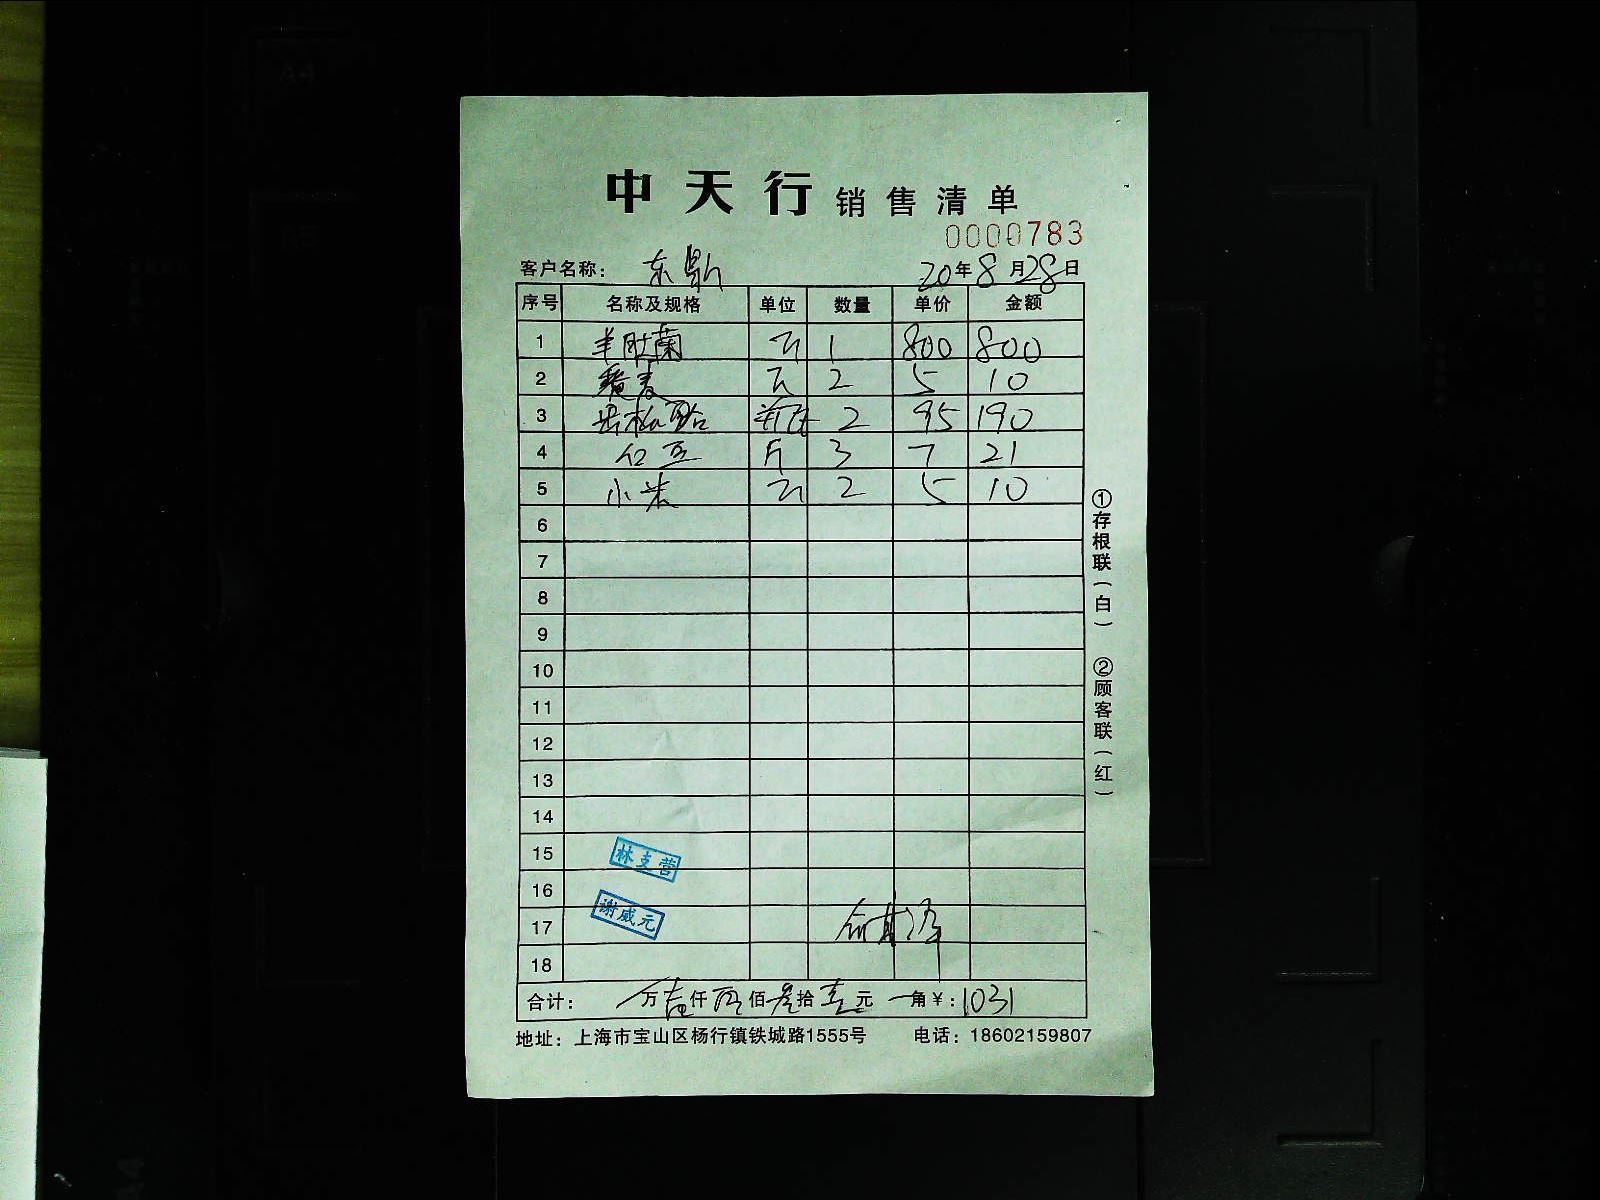 中天行 销售清单
0000783
客户名称： 东鼎 20年8月28日
序号 名称及规格 单位 数量 单价 金额
1 羊肚菌 斤 1 800 800
2 麦 斤 2 5 10
3 2 95 190
4 红豆 斤 3 7 21
5 小米 斤 2 5 10
6
7
8
9
10
11
12
13
14
15 林支营
16
17 谢威元
18
合计： 万壹仟 佰叁拾壹元 角￥：1031
地址：上海市宝山区杨行镇铁城路1555号 电话：18602159807
①存根联(白) ②顾客联(红)